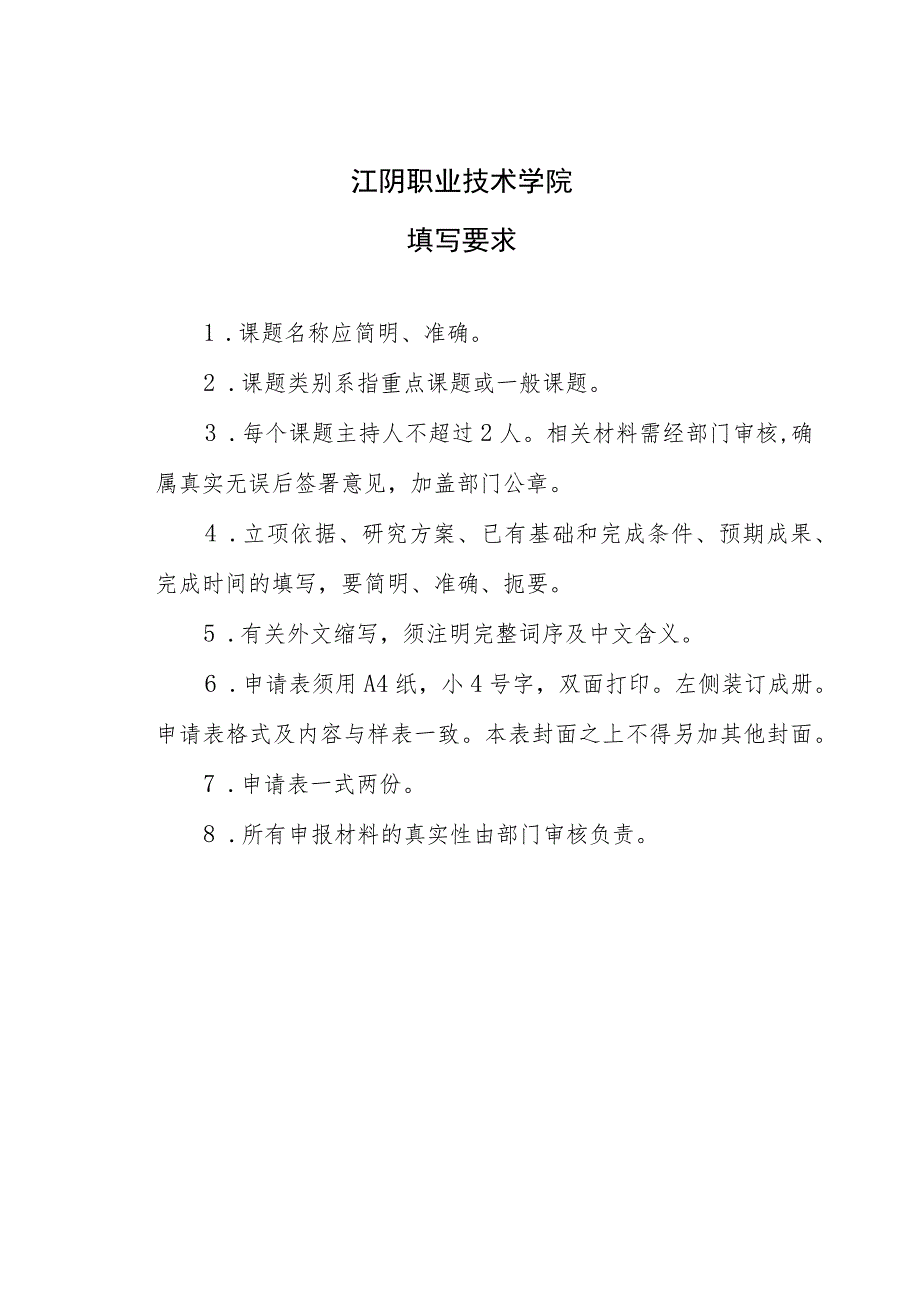 江阴职业技术学院
填写要求
1.课题名称应简明、准确。
2.课题类别系指重点课题或一般课题。
3.每个课题主持人不超过2人。相关材料需经部门审核,确
属真实无误后签署意见，加盖部门公章。
4.立项依据、研究方案、已有基础和完成条件、预期成果、
完成时间的填写，要简明、准确、扼要。
5.有关外文缩写，须注明完整词序及中文含义。
6.申请表须用A4纸，小4号字，双面打印。左侧装订成册。
申请表格式及内容与样表一致。本表封面之上不得另加其他封面。
7.申请表一式两份。
8.所有申报材料的真实性由部门审核负责。